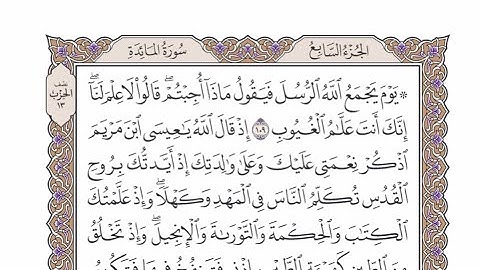 الجزء السابع
سورة المائدة
نصف
الحزب
١٣
۞ يَوْمَ يَجْمَعُ ٱللَّهُ ٱلرُّسُلَ فَيَقُولُ مَاذَآ أُجِبْتُمْۖ قَالُوا۟ لَا عِلْمَ لَنَآۖ
إِنَّكَ أَنتَ عَلَّٰمُ ٱلْغُيُوبِ ١٠٩ إِذْ قَالَ ٱللَّهُ يَٰعِيسَى ٱبْنَ مَرْيَمَ
ٱذْكُرْ نِعْمَتِى عَلَيْكَ وَعَلَىٰ وَٰلِدَتِكَ إِذْ أَيَّدتُّكَ بِرُوحِ
ٱلْقُدُسِ تُكَلِّمُ ٱلنَّاسَ فِى ٱلْمَهْدِ وَكَهْلًاۖ وَإِذْ عَلَّمْتُكَ
ٱلْكِتَٰبَ وَٱلْحِكْمَةَ وَٱلتَّوْرَىٰةَ وَٱلْإِنجِيلَۖ وَإِذْ تَخْلُقُ